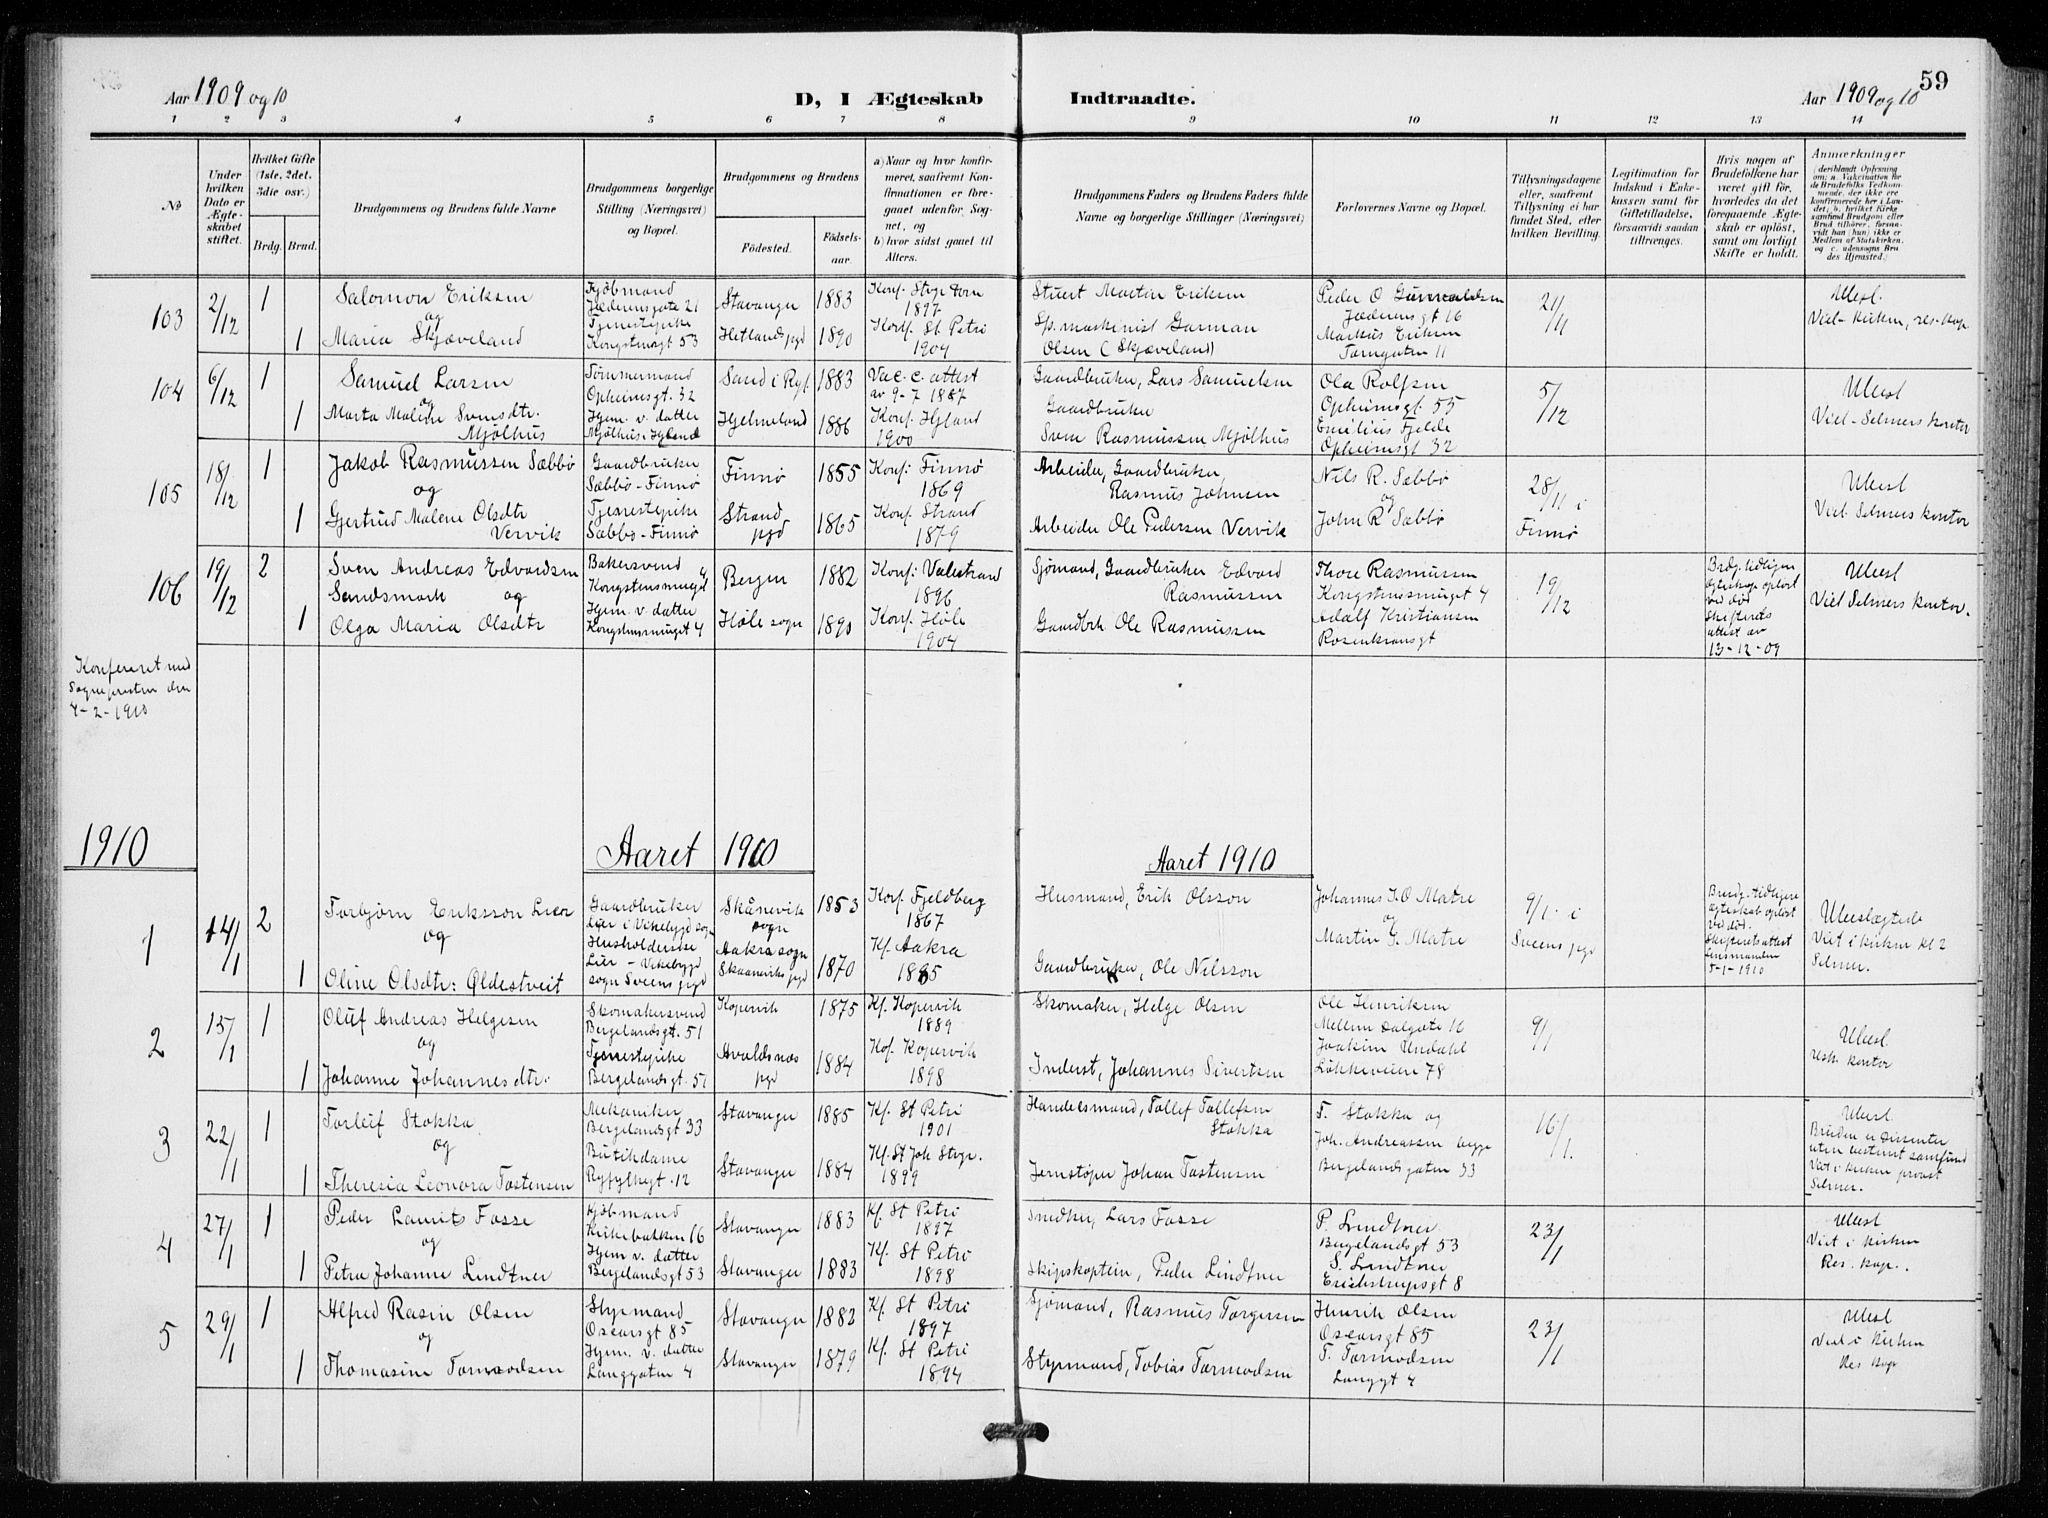 Aar 1909 og 10
D, I Ægteskab
Indtraadte.
Aar 1909 og 10
59
1 2 3 4 5 6 7 8 9 10 11 12 13 14
No
Under hvilken Dato er Ægteskabet stiftet.
Hvilket Gifte (1ste, 2det, 3die osv.)
Brdg. Brud.
Brudgommens og Brudens fulde Navne
Brudgommens borgerlige Stilling (Næringsvei) og Bopæl.
Brudgommens og Brudens
Fødested.
Fødselsaar.
a) Naar og hvor konfirmeret, saafremt Konfirmationen er foregaaet udenfor Sognet, og
b) hvor sidst gaaet til Alters.
Brudgommens Faders og Brudens Faders fulde Navne og borgerlige Stillinger (Næringsvei)
Forlovernes Navne og Bopæl.
Tillysningsdagene eller, saafremt Tillysning ei har fundet Sted, efter hvilken Bevilling.
Legitimation for Indskud i Enkekassen samt for Giftetilladelse, forsaavidt saadan tiltrænges.
Hvis nogen af Brudefolkene har været gift før, hvorledes da det foregaaende Ægteskab er opløst, samt om lovligt Skifte er holdt.
Anmærkninger
103
2/12
1
Salomon Eriksen
og
1
Maria Skjæveland
Kjøbmand
Jæderensgate 21
Tjenestepike
Kongstensgt 53
Stavanger
Hetlands pgd
1883
1890
Konf. Stvgr Dom
1897
Konf. St. Petri
1904
Stuert Martin Eriksen
Sp. maskinist Garman
Olsen (Skjæveland)
Peder O Gunvaldsen
Jæderensgt 16
Markus Eriksen
Tarngaten 11
21/11
Ubesl.
Viet- Kirken, res. kap.
104
6/12
1
Samuel Larsen
og
1
Marta Malene Svensdtr.
Mjølhus
Tømmermand
Opheimsgt. 32
Hjem. v. datter
Mjølhus i Hyland
Sand i Ryf.
Hjelmeland
1883
1886
Vac. c. attest
av 9-7 1887
Konf. Hyland
1900
Gaardbruker, Lars Samuelsen
Gaardbruker
Sven Rasmussen Mjølhus
Ola Rolfsen
Opheimsgt. 55
Emilius Fjelde
Opheimsgt 32
5/12
Ubesl
Viet- Selmers kontor
105
18/12
1
Jakob Rasmussen Sæbbø
og
1
Gjertrud Malene Olsdtr
Vervik
Gaardbruker
Sæbbø-Finnø
Tjenestepike
Sæbbø-Finnø
Finnø
Strand
pgd
1855
1865
Konf: Finnø
1869
Konf. Strand
1879
Arbeider, Gaardbruker,
Rasmus Johnsen
Arbeider Ole Pedersen Vervik
Nils R. Sæbbø
og
John R Sæbbø
28/11 i
Finnø
Ubesl
Viet Selmers kontor
106
19/12
2
Sven Andreas Edvardsen
Sandsmark og
1
Olga Maria Olsdtr
Bakersvend
Kongstensmuget 4
Hjem. v. datter
Kongstensmuget 4
Bergen
Høle sogn
1882
1890
Konf: Valestrand
1896
Konf. Høle
1904
Sjømand, Gaardbruker Edvard
Rasmussen
Gaardbrk Ole Rasmussen
Thore Rasmussen
Kongstensmuget 4
Adolf Kristiansen
Rosenkransgt
19/12
Brdg. tidligere
ægteskap opløst
ved død
Skifterets
attest av
13-12-09
Ubesl
Viet Selmers kontor.
Konfereret med
Sognepresten den
4-2-1910
1910
Aaret 1910
Aaret 1910
1
14/1
2
Torbjørn Eriksson Lier
og
1
Oline Olsdtr: Øldestveit
Gaardbruker
Lier i Vikebygd sogn
Husholderske
Lier - Vikebygd
sogn Sveens pgd
Skånevik
sogn
Aakra sogn
Skaaneviks pgd
1853
1870
Konf. Fjeldberg
1867
Kf. Aakra
1885
Husmand, Erik Olsson
Gaardbruker, Ole Nilsson
Johannes J. O Matre
og
Martin J. Matre
9/1. i
Sveens pgd
Brudg. tidligere
ægteskab opløst
ved død.
Skifteretsattest
lensmanden
5-1-1910
Ubeslægtede
Viet i kirken kl 2
Selmer.
2
15/1
1
Oluf Andreas Helgesen
og
1
Johanne Johannesdtr.
Skomakersvend
Bergelandsgt. 51
Tjenestepike
Bergelandsgt. 51
Kopervik
Avaldsnes
pgd
1875
1884
Kf. Kopervik
1889
Kof. Kopervik
1898
Skomaker, Helge Olsen
Inderst, Johannes Sivertsen
Ole Henriksen
Mellem Dalgate 16
Joakim Undahl
Løkkeveien 78
9/1
Ubesl
resk. kontor
3
22/1
1
Torleif Stokka
og
1
Theresia Leonora Tostensen
Mekaniker
Bergelandsgt 33
Butikdame
Ryfylkegt. 12
Stavanger
Stavanger
1885
1884
Kf. St Petri
1901
Kf. St Joh Stvgr.
1899
Handelsmand, Tollef Tollefsen
Stokka
Jernstøper Johan Tostensen
T. Stokka og
Joh. Andreassen begge
Bergelandsgaten 33
16/1.
Ubesl.
Bruden er Dissenter
uten bestemt samfund
Viet i kirken provst
Selmer.
4
27/1
1
Peder Laurits Fosse
og
1
Petra Johanne Lindtner
Kjøbmand
Kirkebakken 16
Hjem v. datter
Bergelandsgt 53
Stavanger
Stavanger
1883
1883
Kf. St Petri
1897
Kf. St Petri
1898
Snedker, Lars Fosse
Skipskaptein, Peder Lindtner
P. Lindtner
Bergelandsgt 53
S. Lindtner
Erichstrupsgt 8
23/1
Ubesl
Viet i kirken
Res. kap.
5
29/1
1
Alfred Rasin Olsen
og
1
Thomasine Tormodsen
Styrmand
Oscarsgt 85
Hjem. v. datter
Langgaten 4
Stavanger
Stavanger
1882
1879
Kf. St Petri
1897
Kf. St Petri
1894
Sjømand, Rasmus Torgersen
Styrmand, Tobias Tormodsen
Henrik Olsen
Oscarsgt 85
T. Tormodsen
Langgt 4
23/1
Ubesl
Viet i kirken
Res kap